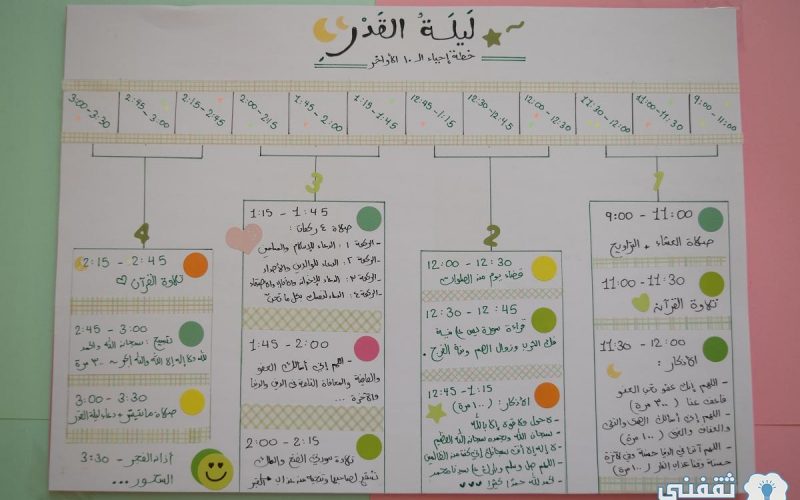 لَيلَةُ القَدْرِ
خطة إحياء الـ ١٠ الأواخر
9:00 - 11:00
11:00 - 11:30
11:30 - 12:00
12:00 - 12:30
12:30 - 12:45
12:45 - 1:15
1:15 - 1:45
1:45 - 2:00
2:00 - 2:15
2:15 - 2:45
2:45 - 3:00
3:00 - 3:30
1
9:00 - 11:00
صلاة العشاء + التراويح
11:00 - 11:30
تلاوة القرآن
11:30 - 12:00
الأذكار:
- اللهم إنك عفو تحب العفو
فاعف عنا (٣٠٠ مرة)
- اللهم إني أسألك الهدى والتقى
والعفاف والغنى (١٠٠ مرة)
- اللهم آتنا في الدنيا حسنة وفي الآخرة
حسنة وقنا عذاب النار (١٠٠ مرة)
2
12:00 - 12:30
قضاء يوم من الصلوات
12:30 - 12:45
قراءة سورة يس على نية
فك الكرب وزوال الهم
12:45 - 1:15
الأذكار: (١٠٠ مرة)
- لا حول ولا قوة إلا بالله
- سبحان الله وبحمده سبحان الله العظيم
- لا إله إلا أنت سبحانك إني كنت من الظالمين
- اللهم صل وسلم وبارك على سيدنا محمد
- الحمد لله حمدًا كثيرًا
3
1:15 - 1:45
صلاة ٤ ركعات:
- الركعة ١: الدعاء للإسلام والمسلمين
- الركعة ٢: الدعاء للوالدين والأجداد
- الركعة ٣: الدعاء للإخوان والأقارب والأصدقاء
- الركعة ٤: الدعاء لنفسك بكل ما تحب
1:45 - 2:00
- اللهم إني أسألك العفو
والعافية والمعافاة التامة في الدين والدنيا
والآخرة ...
2:00 - 2:15
تلاوة سورتي والملك
4
2:15 - 2:45
تلاوة القرآن
2:45 - 3:00
تسبيح: سبحان الله والحمد
لله ولا إله إلا الله والله أكبر ~ ٣٠٠ مرة
3:00 - 3:30
صلاة + دعاء ليلة القدر
3:30 - أذان الفجر
السحور ...
ثقفني